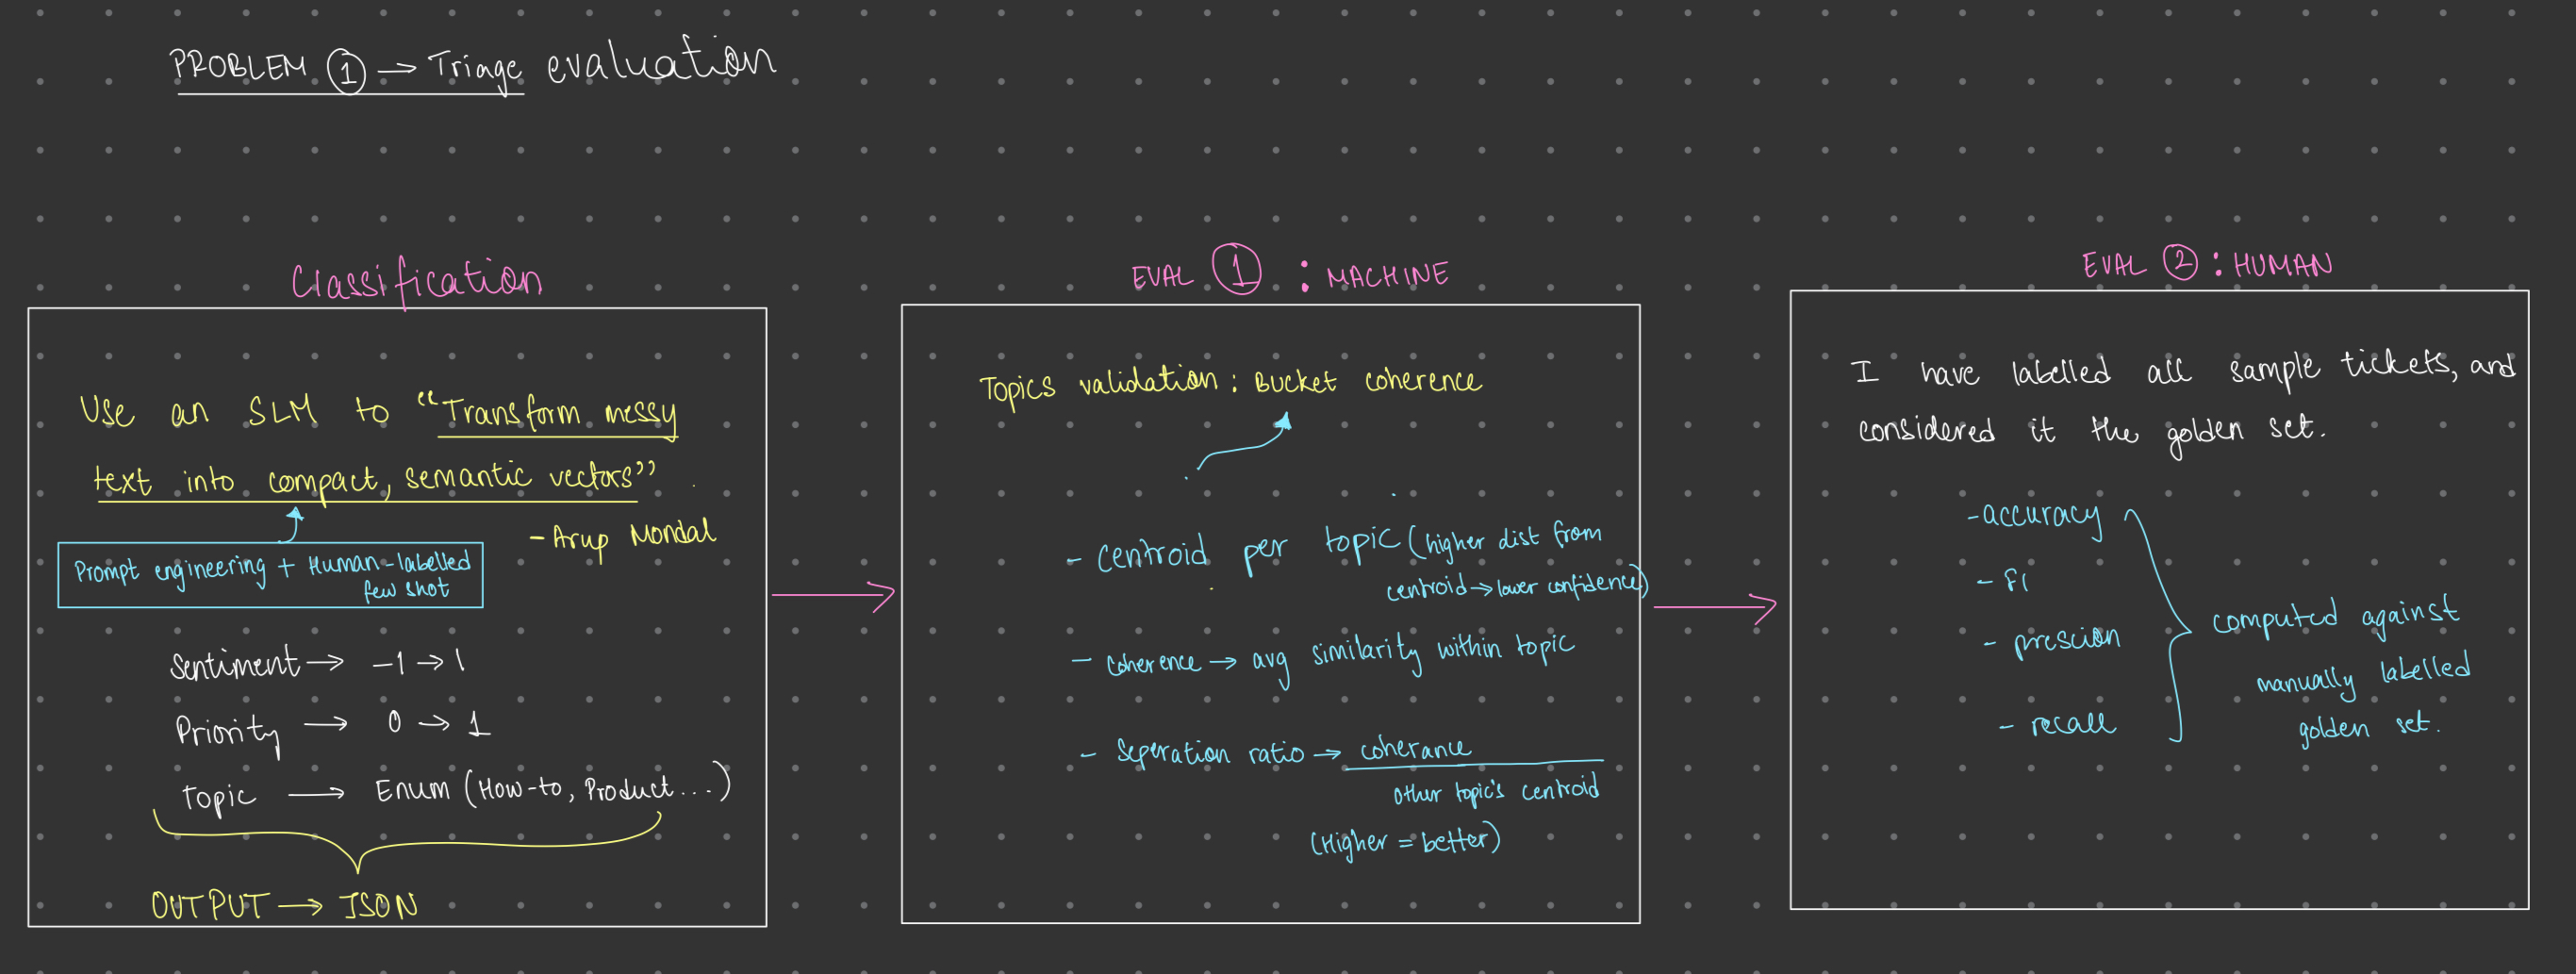 PROBLEM ① → Triage evaluation
Classification
Use an SLM to "Transform messy
text into compact, semantic vectors"
- Arup Mondal
Prompt engineering + Human-labelled
few shot
Sentiment → -1 → 1
Priority → 0 → 1
Topic → Enum (How-to, Product...)
OUTPUT → JSON
EVAL ① : MACHINE
Topics validation : Bucket coherence
- Centroid per topic (higher dist from
centroid → lower confidence)
- coherence → avg similarity within topic
- Seperation ratio → coherance
other topic's centroid
(Higher = better)
EVAL ② : HUMAN
I have labelled all sample tickets, and
considered it the golden set.
- accuracy
- F1
- prescion
- recall
computed against
manually labelled
golden set.